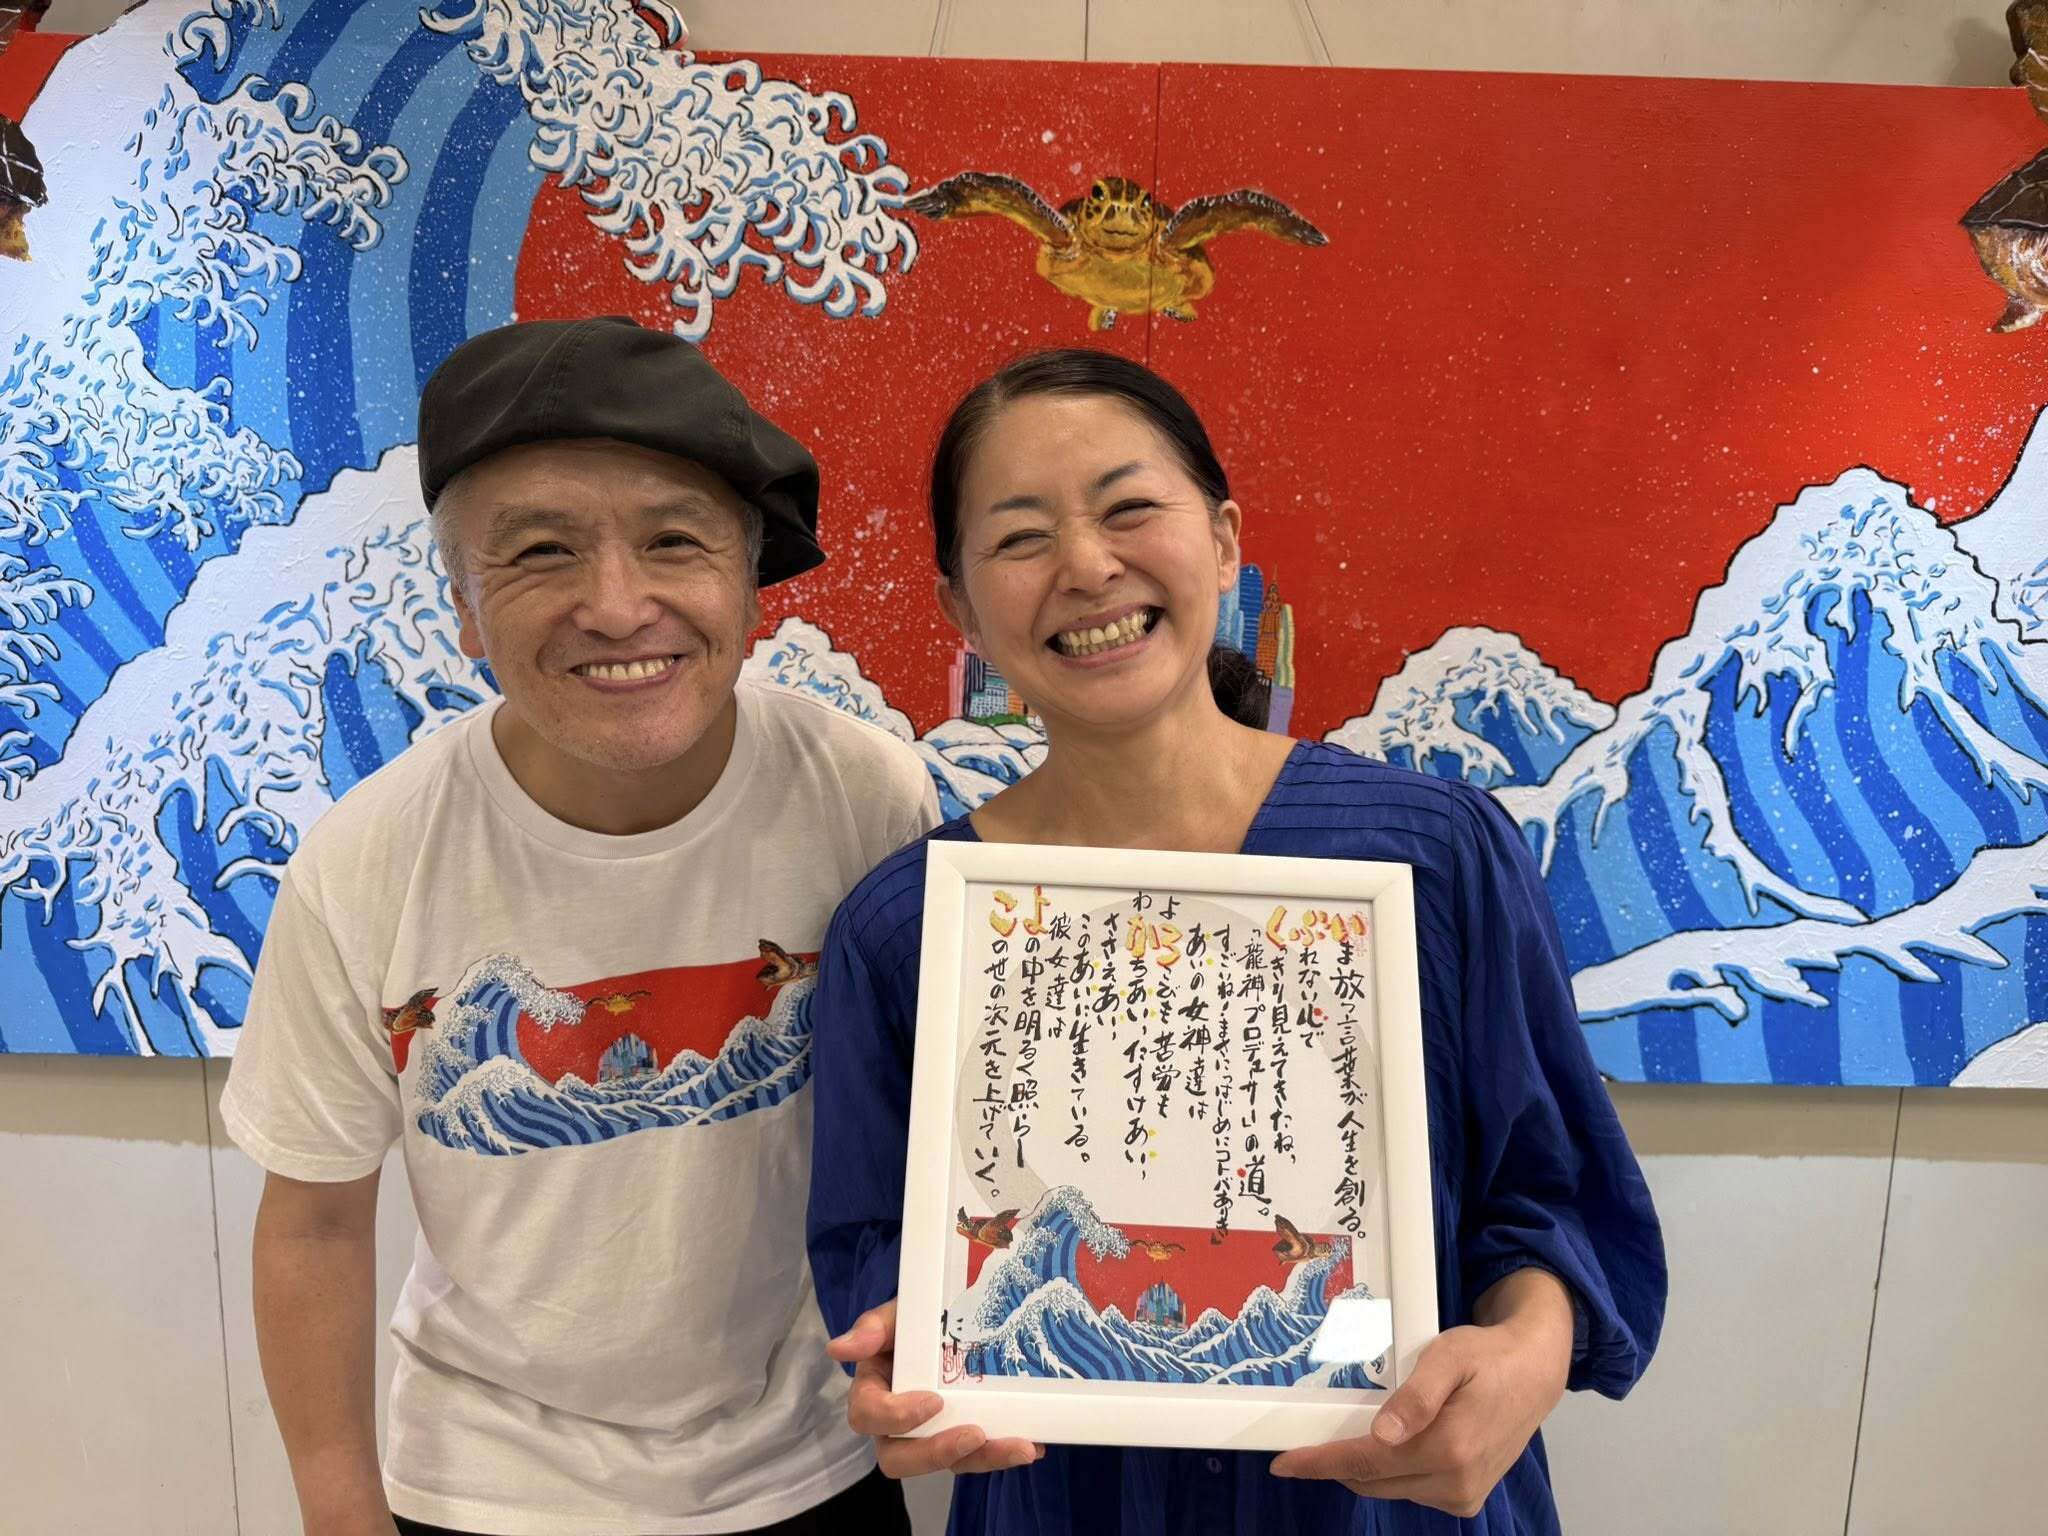 いま放つ言葉が人生を創る。
ぶれない心で
くっきり見えてきたね、
「龍神プロデューサー」の道。
すごいね!まさに「はじめにコトバありき」
あいの女神達は
よろこびも苦労も
わかちあい、たすけあい、
ささえあい、
このあいに生きている。
彼女達は
よの中を明るく照らし
この世の次元を上げていく。